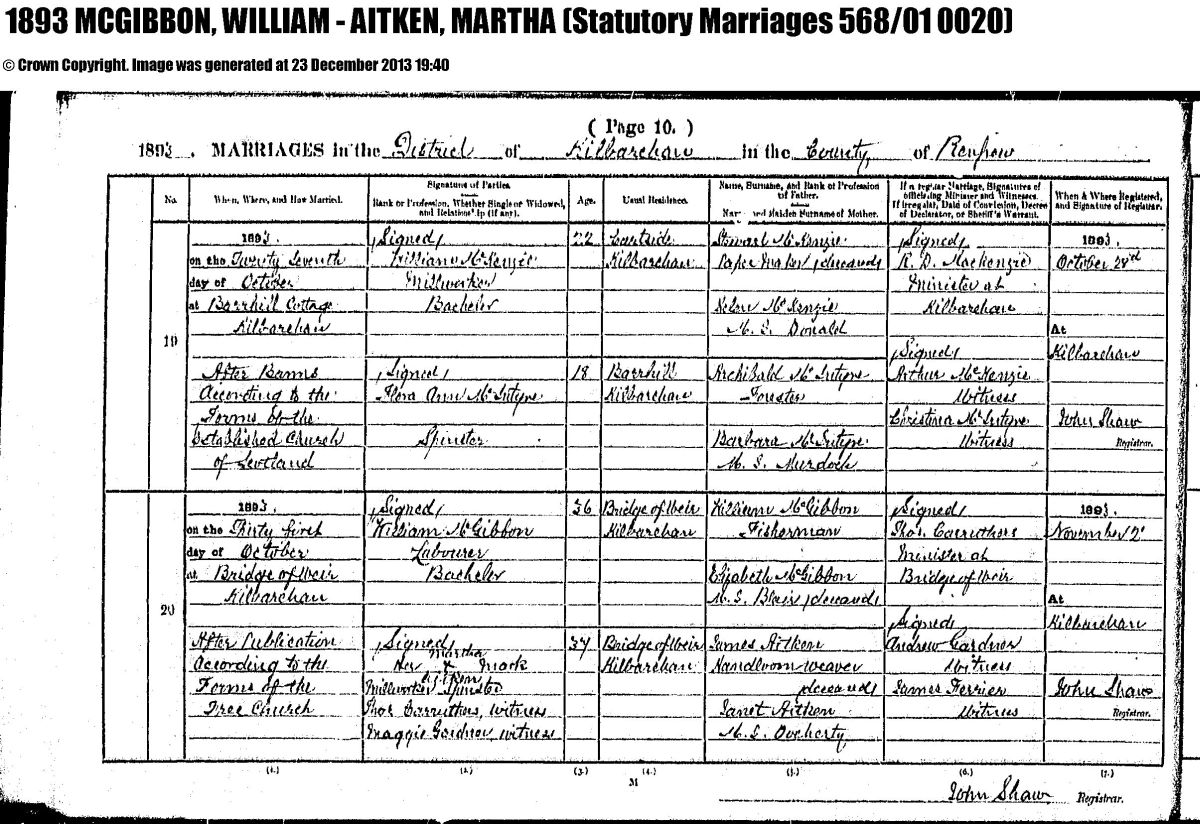 1893 MCGIBBON, WILLIAM - AITKEN, MARTHA (Statutory Marriages 568/01 0020)
© Crown Copyright. Image was generated at 23 December 2013 19:40
( Page 10. )
1893. MARRIAGES in the District of Kilbarchan in the County of Renfrew
No.
When, Where, and How Married.
Signatures of Parties.
Rank or Profession, Whether Single or Widowed, and Relationship (if any).
Age.
Usual Residence.
Name, Surname, and Rank or Profession of Father.
Name and Maiden Surname of Mother.
If a regular Marriage, Signatures of officiating Minister and Witnesses.
If irregular, Date of Conviction, Decree of Declarator, or Sheriff's Warrant.
When & Where Registered, and Signature of Registrar.
19
1893.
on the Twenty Seventh
day of October
at Barrhill Cottage
Kilbarchan
After Banns
According to the
Forms of the
Established Church
of Scotland
(Signed)
William McKenzie
Millworker
Bachelor
(Signed)
Flora Ann McIntyre
Spinster
22
18
Eastside
Kilbarchan
Barrhill
Kilbarchan
Stewart McKenzie
Paper Maker (deceased)
Helen McKenzie
M.S. Donald
Archibald McIntyre
Forester
Barbara McIntyre
M.S. Murdoch
(Signed)
R. D. Mackenzie
Minister at
Kilbarchan
(Signed)
Arthur McKenzie
Witness
Christina McIntyre
Witness
1893.
October 28th
At
Kilbarchan
John Shaw
Registrar.
20
1893.
on the Thirty first
day of October
at Bridge of Weir
Kilbarchan
After Publication
According to the
Forms of the
Free Church
(Signed)
William McGibbon
Labourer
Bachelor
(Signed)
Martha
Her X Mark
Aitken
Millworker Spinster
Thos Carruthers, witness
Maggie Gardner, witness
36
34
Bridge of Weir
Kilbarchan
Bridge of Weir
Kilbarchan
William McGibbon
Fisherman
Elizabeth McGibbon
M.S. Blair (deceased)
James Aitken
Handloom weaver
(deceased)
Janet Aitken
M.S. Docherty
(Signed)
Thos. Carruthers
Minister at
Bridge of Weir
(Signed)
Andrew Gardner
Witness
James Ferrier
Witness
1893.
November 2d
At
Kilbarchan
John Shaw
Registrar.
(1.) (2.) (3.) (4.) (5.) (6.) (7.)
31
John Shaw Registrar.